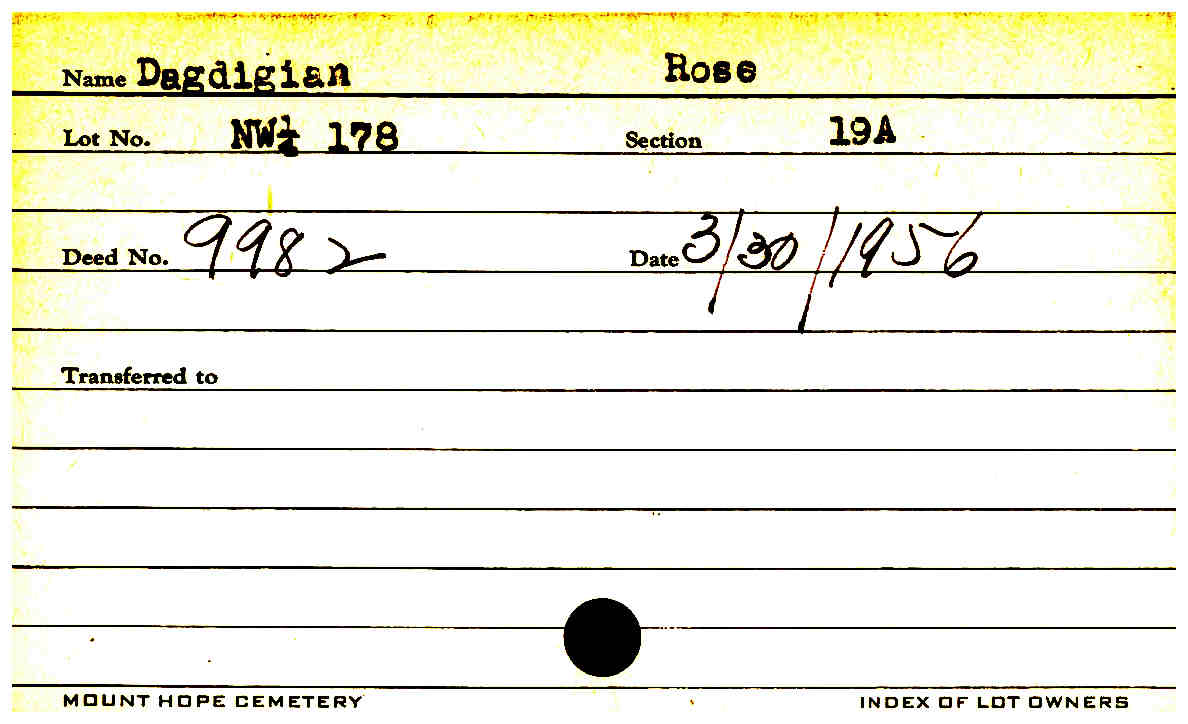 Name Dagdigian Rose
Lot No. NW¼ 178 Section 19A
Deed No. 9982 Date 3/30/1956
Transferred to
MOUNT HOPE CEMETERY INDEX OF LOT OWNERS